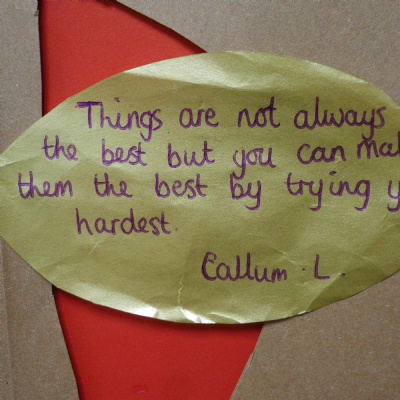 Things are not always
the best but you can
them the best by trying
hardest.
Callum. L.